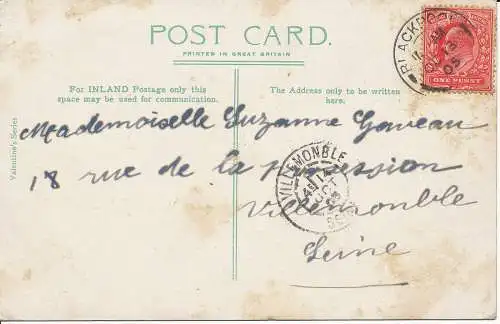 POST CARD.
PRINTED IN GREAT BRITAIN
For INLAND Postage only this
space may be used for communication.
The Address only to be written
here.
Valentine's Series
ONE PENNY
Mademoiselle Suzanne Gaveau
18 rue de la procession
Villemonble
Seine
VILLEMONBLE
14